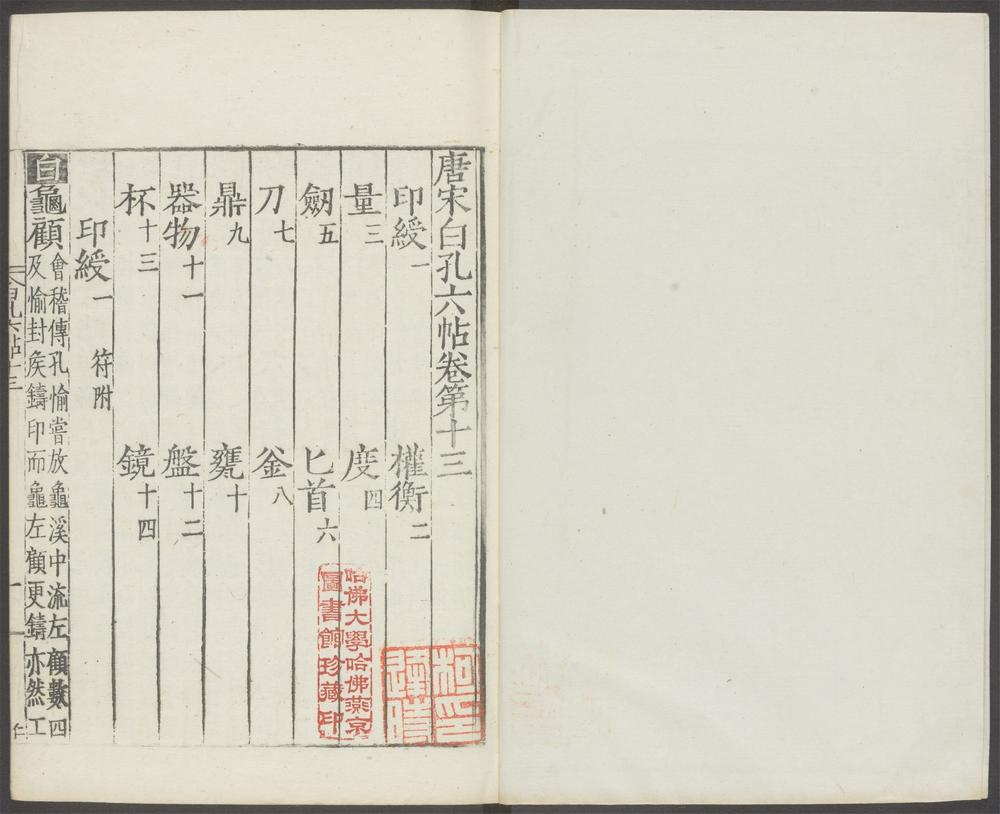 唐宋白孔六帖卷第十三
印綬一 權衡二
量三 度四
劒五 匕首六
刀七 釡八
鼎九 甕十
器物十一 盤十二
杯十三 鏡十四
印綬一 符附
白龜顧 會稽傳孔愉嘗放龜溪中流左顧數四
及愉封矦鑄印而龜左顧更鑄亦然工
白孔六帖十三
一
哈佛大學哈佛燕京
圖書館珍藏印
柯印
逢時